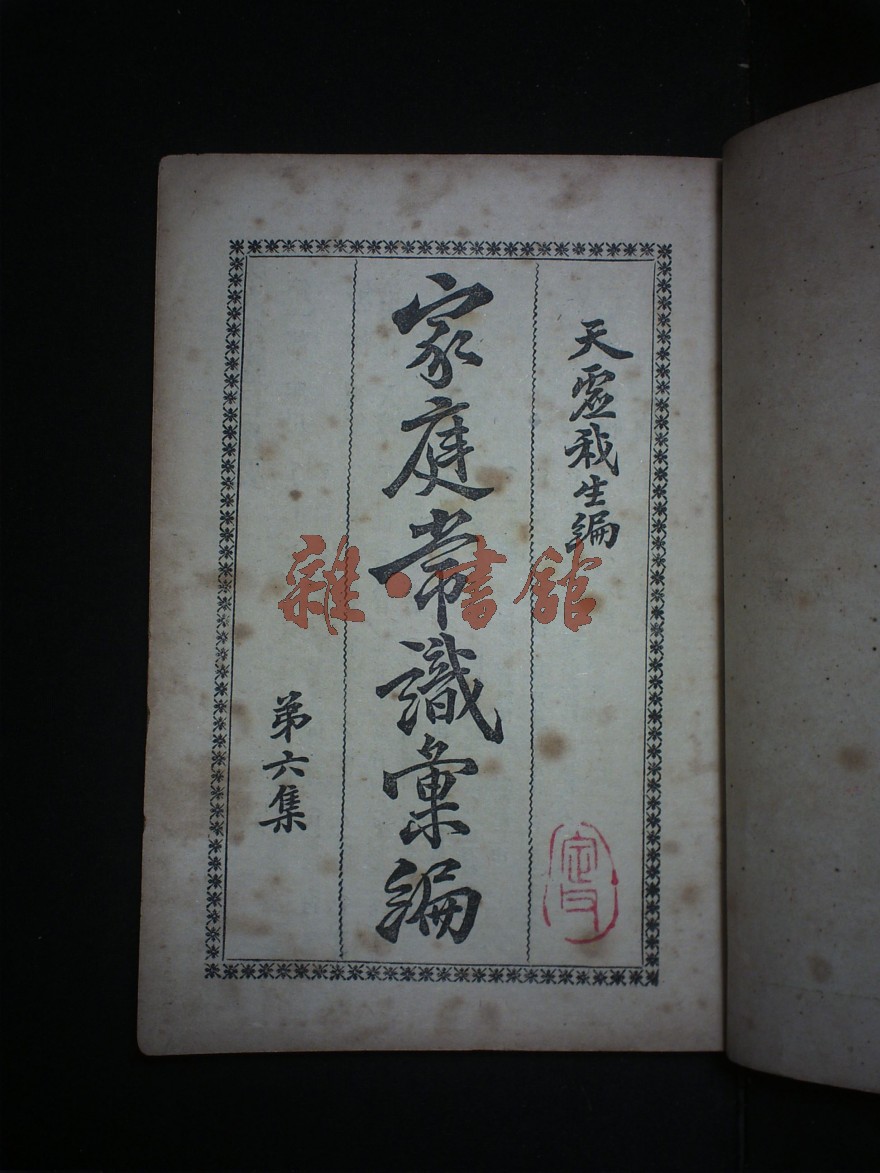 天虛我生編
家庭常識彙編
第六集
雜·書館